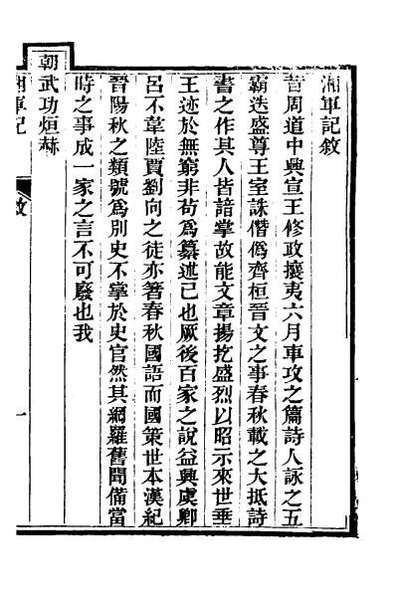 湘軍記敘
昔周道中興宣王修政攘夷六月車攻之篇詩人詠之五
霸迭盛尊王室誅僭僞齊桓晉文之事春秋載之大抵詩
書之作其人皆諳掌故能文章揚扢盛烈以昭示來世垂
王迹於無窮非苟爲纂述已也厥後百家之說益興虞卿
呂不韋陸賈劉向之徒亦著春秋國語而國策世本漢紀
晉陽秋之類號爲別史不掌於史官然其網羅舊聞備當
時之事成一家之言不可廢也我
朝武功烜赫
湘軍記
敘
一